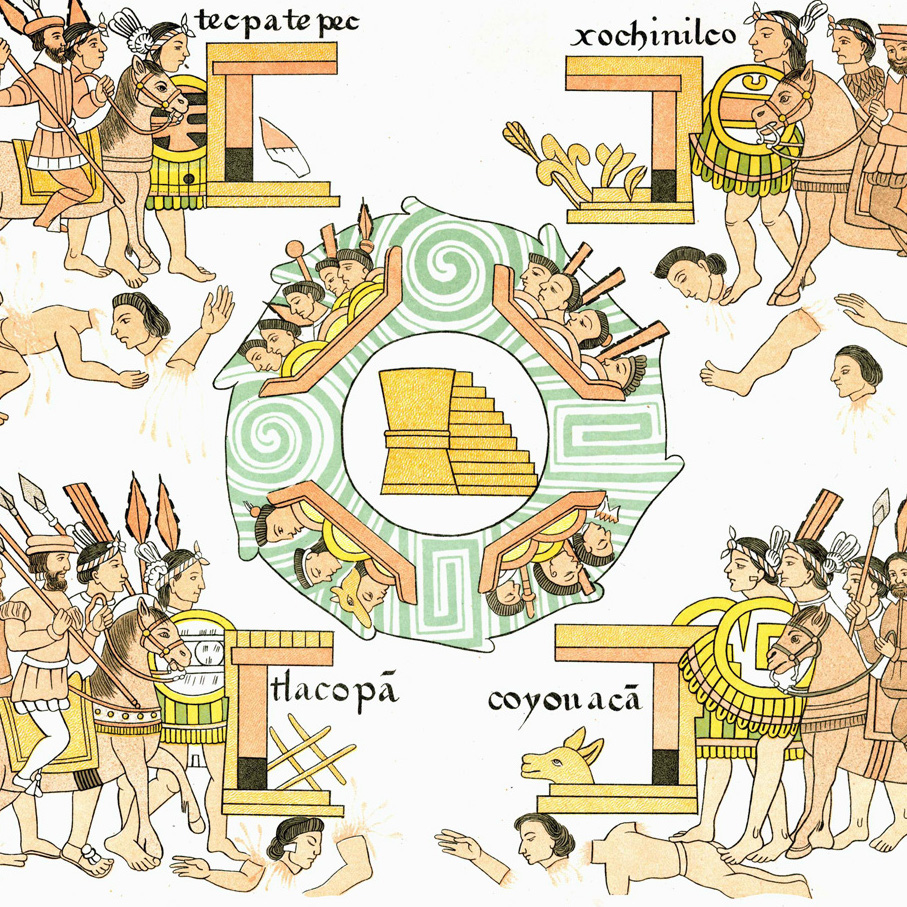 tecpatepec
xochinilco
tlacopā
coyouacā